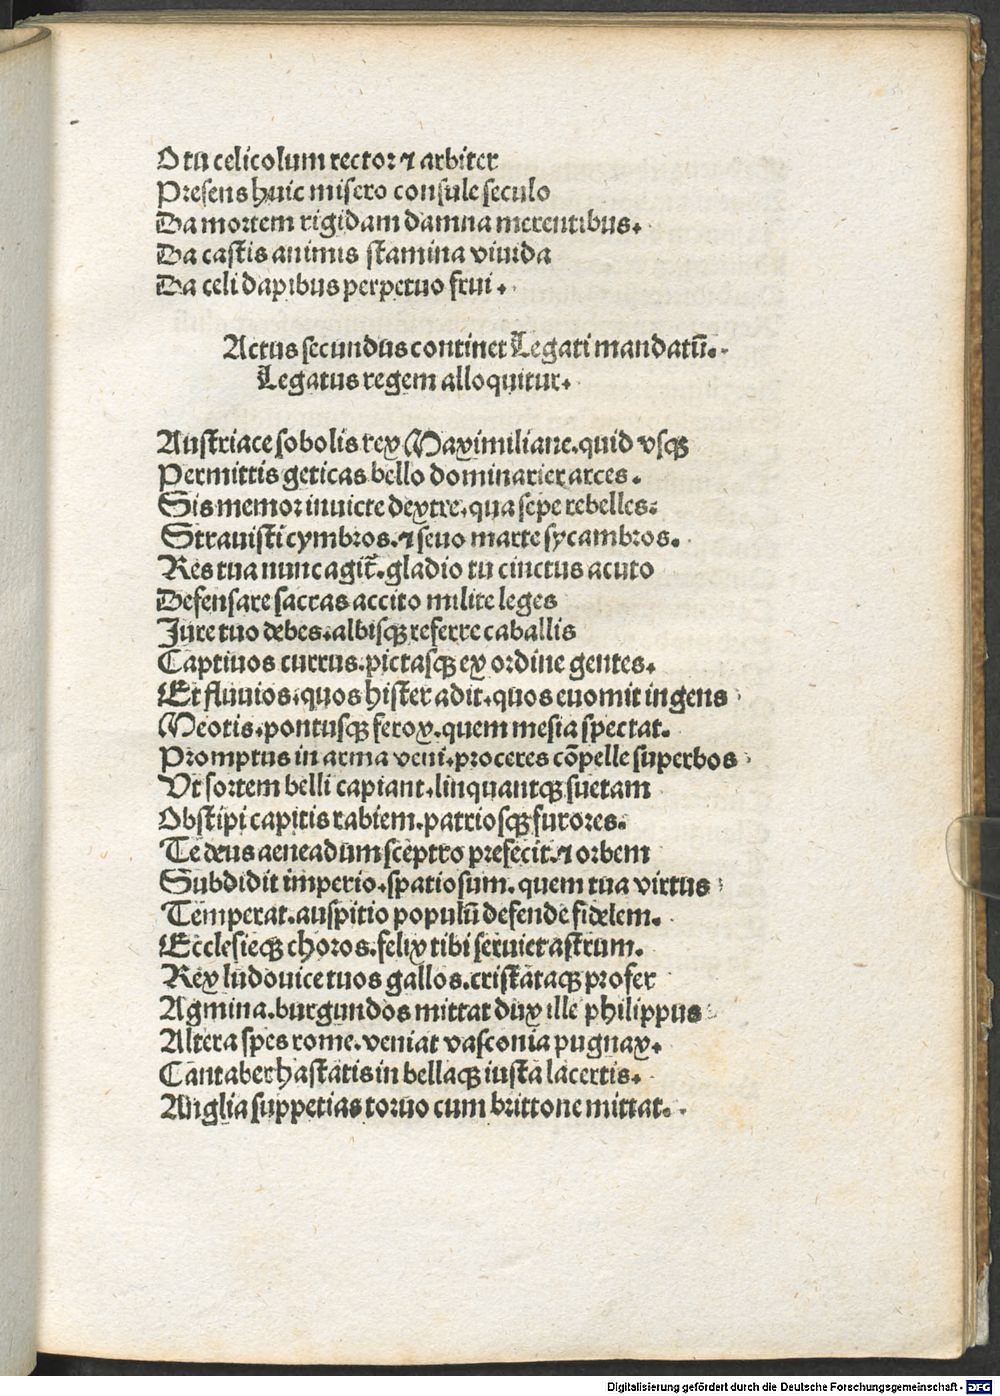 O tu celicolum rector ⁊ arbiter
Presens huic misero consule seculo
Da mortem rigidam damna merentibus.
Da castis animis stamina viuida
Da celi dapibus perpetuo frui.
Actus secundus continet Legati mandatū.
Legatus regem alloquitur.
Austriace sobolis rex Maximiliane.quid vsqꝫ
Permittis geticas bello dominarier arces.
Sis memor inuicte dextre.qua sepe rebelles.
Strauisti cymbros.⁊ seuo marte sycambros.
Res tua nunc agit̄.gladio tu cinctus acuto
Defensare sacras accito milite leges
Jure tuo debes.albisqꝫ referre caballis
Captiuos currus.pictasqꝫ ex ordine gentes.
Et fluuios.quos hister adit.quos euomit ingens
Meotis.pontusqꝫ ferox.quem mesia spectat.
Promptus in arma veni.proceres cōpelle superbos
Vt sortem belli capiant.linquantqꝫ suetam
Obstipi capitis rabiem.patriosqꝫ furores.
Te deus aeneadum sceptro prefecit.⁊ orbem
Subdidit imperio.spatiosum.quem tua virtus
Temperat.auspitio populū defende fidelem.
Ecclesieqꝫ choros.felix tibi seruiet astrum.
Rex ludouice tuos gallos.cristataqꝫ profer
Agmina.burgundos mittat dux ille philippus
Altera spes rome.veniat vasconia pugnax.
Cantaber hastatis in bellaqꝫ iusta lacertis.
Anglia suppetias toruo cum brittone mittat.
Digitalisierung gefördert durch die Deutsche Forschungsgemeinschaft - DFG